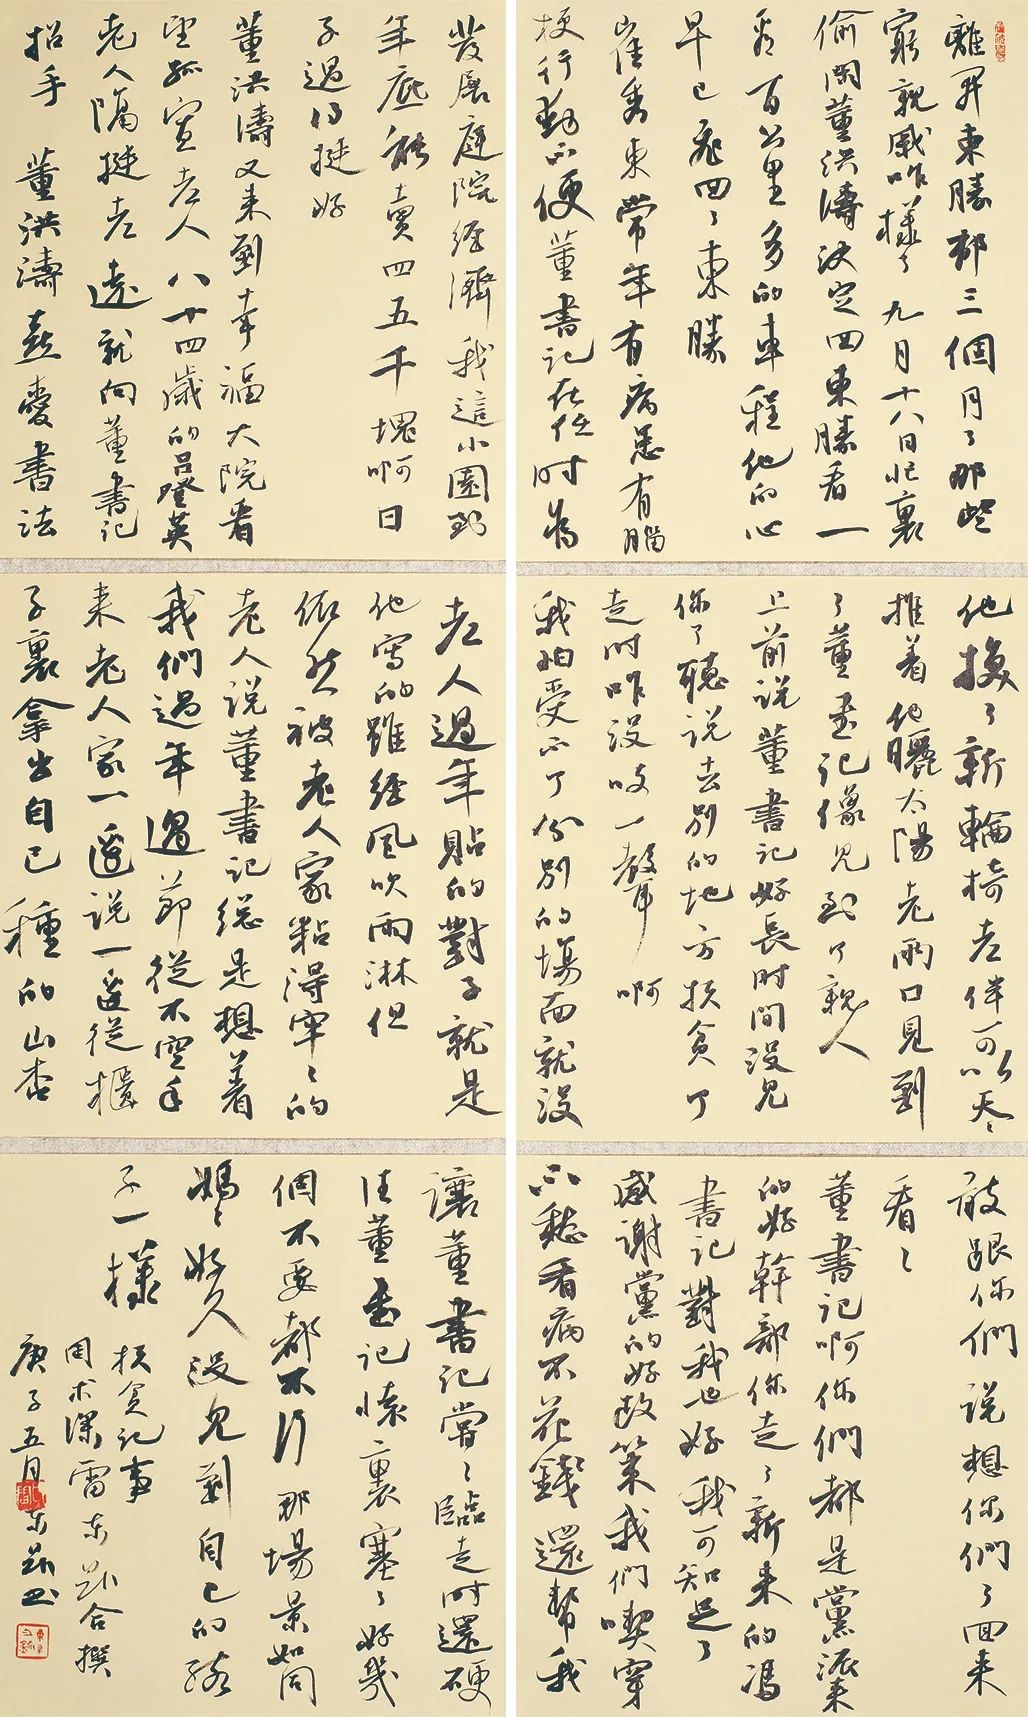 離開東勝村三個月了那些
窮親戚咋樣了 九月十八日忙裏
偷閒董洪濤決定回東勝看一
看 百公里多的車程他的心
早已飛回了東勝
崔秀東常年有病患有腦
梗行動不便董書記在任時爲
他換了新輪椅老伴可以天天
推着他曬太陽 老兩口見到
了董書記像見到了親人
上前説董書記好長时間没見
你了聽説去别的地方扶貧了
走时咋没吱一聲 啊
我怕受不了分别的場面就没
敢跟你們説想你們了回來
看々
董書記啊你們都是黨派來
的好幹部你走了新來的馮
書記對我也好我可知足了
感謝黨的好政策我們喫穿
不愁看病不花錢還幫我
發展庭院經濟我這小園到
年底能賣四五千塊啊日
子過得挺好
董洪濤又來到幸福大院看
望孤寡老人 八十四歲的呂英
老人隔挺老遠就向董書記
招手 董洪濤喜愛書法
老人過年貼的對子就是
他寫的雖經風吹雨淋但
依然被老人家粘得牢々的
老人説董書記總是想着
我們過年過節從不空手
來老人家一邊説一邊從櫃
子裏拿出自己種的山杏
讓董書記嘗々臨走时還硬
往董書記懷裏塞了好幾
個不要都不行 那場景如同
媽々好久没見到自己的孩
子一樣
扶貧記事
周术深雷东合撰
庚子五月东書